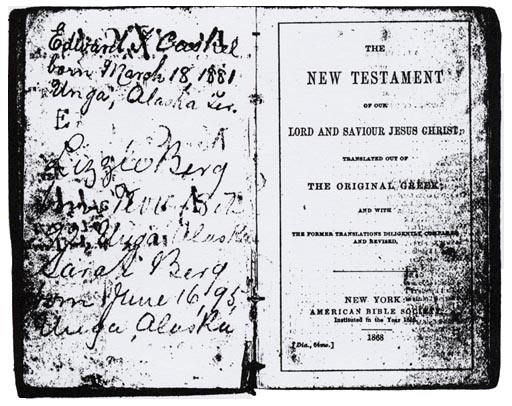 Edward
born March 18 1881
Unga, Alaska Ter.
E
Lizzie Berg
Unga Alaska
Sarah Berg
born June 16, 95
Unga, Alaska
THE
NEW TESTAMENT
OF OUR
LORD AND SAVIOUR JESUS CHRIST;
TRANSLATED OUT OF
THE ORIGINAL GREEK;
AND WITH
THE FORMER TRANSLATIONS DILIGENTLY COMPARED
AND REVISED,
NEW YORK
AMERICAN BIBLE SOCIETY
Instituted in the Year
1868
[Dia., 64mo.]